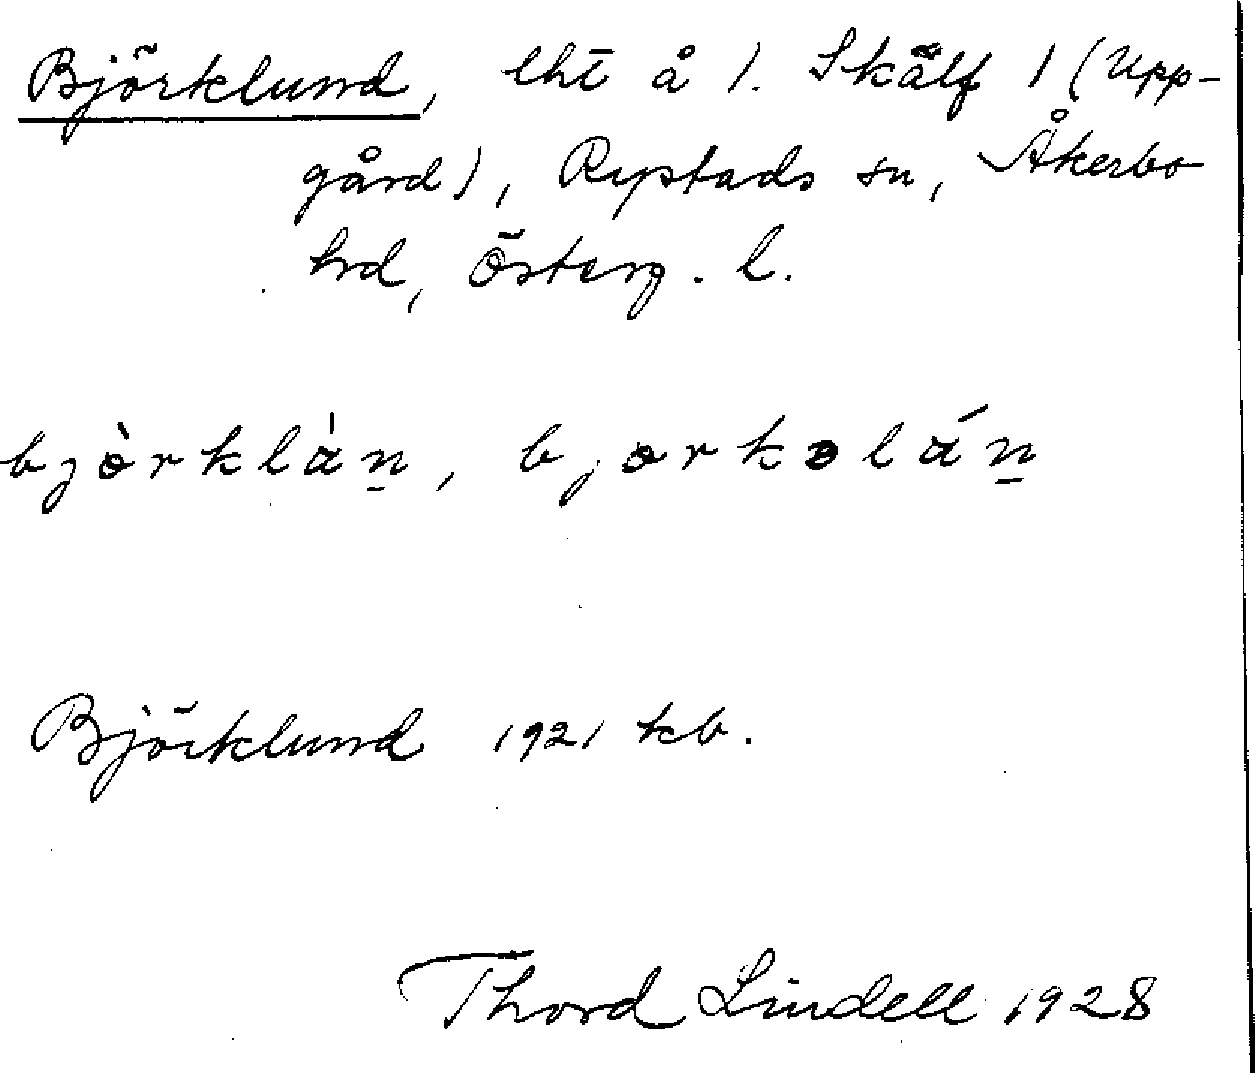 Björklund, lht å 1. Skälf 1 (Upp-
gård), Rystads sn, Åkerbo
hrd, Österg. l.
bjòrklàn̲, bjorkɔlán̲
Björklund 1921 kb.
Thord Lindell 1928